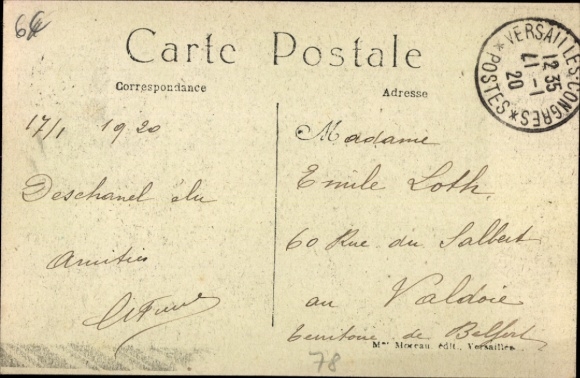 Carte Postale
Correspondance
Adresse
VERSAILLES-CONGRES
12 35
17 - 1
20
*POSTES*
17/1 1920
Deschanel élu
Amitiés
Madame
Emile Loth.
60 Rue du Salbert
au Valdoie
Territoire de Belfort
Mme Moreau, édit., Versailles.
78